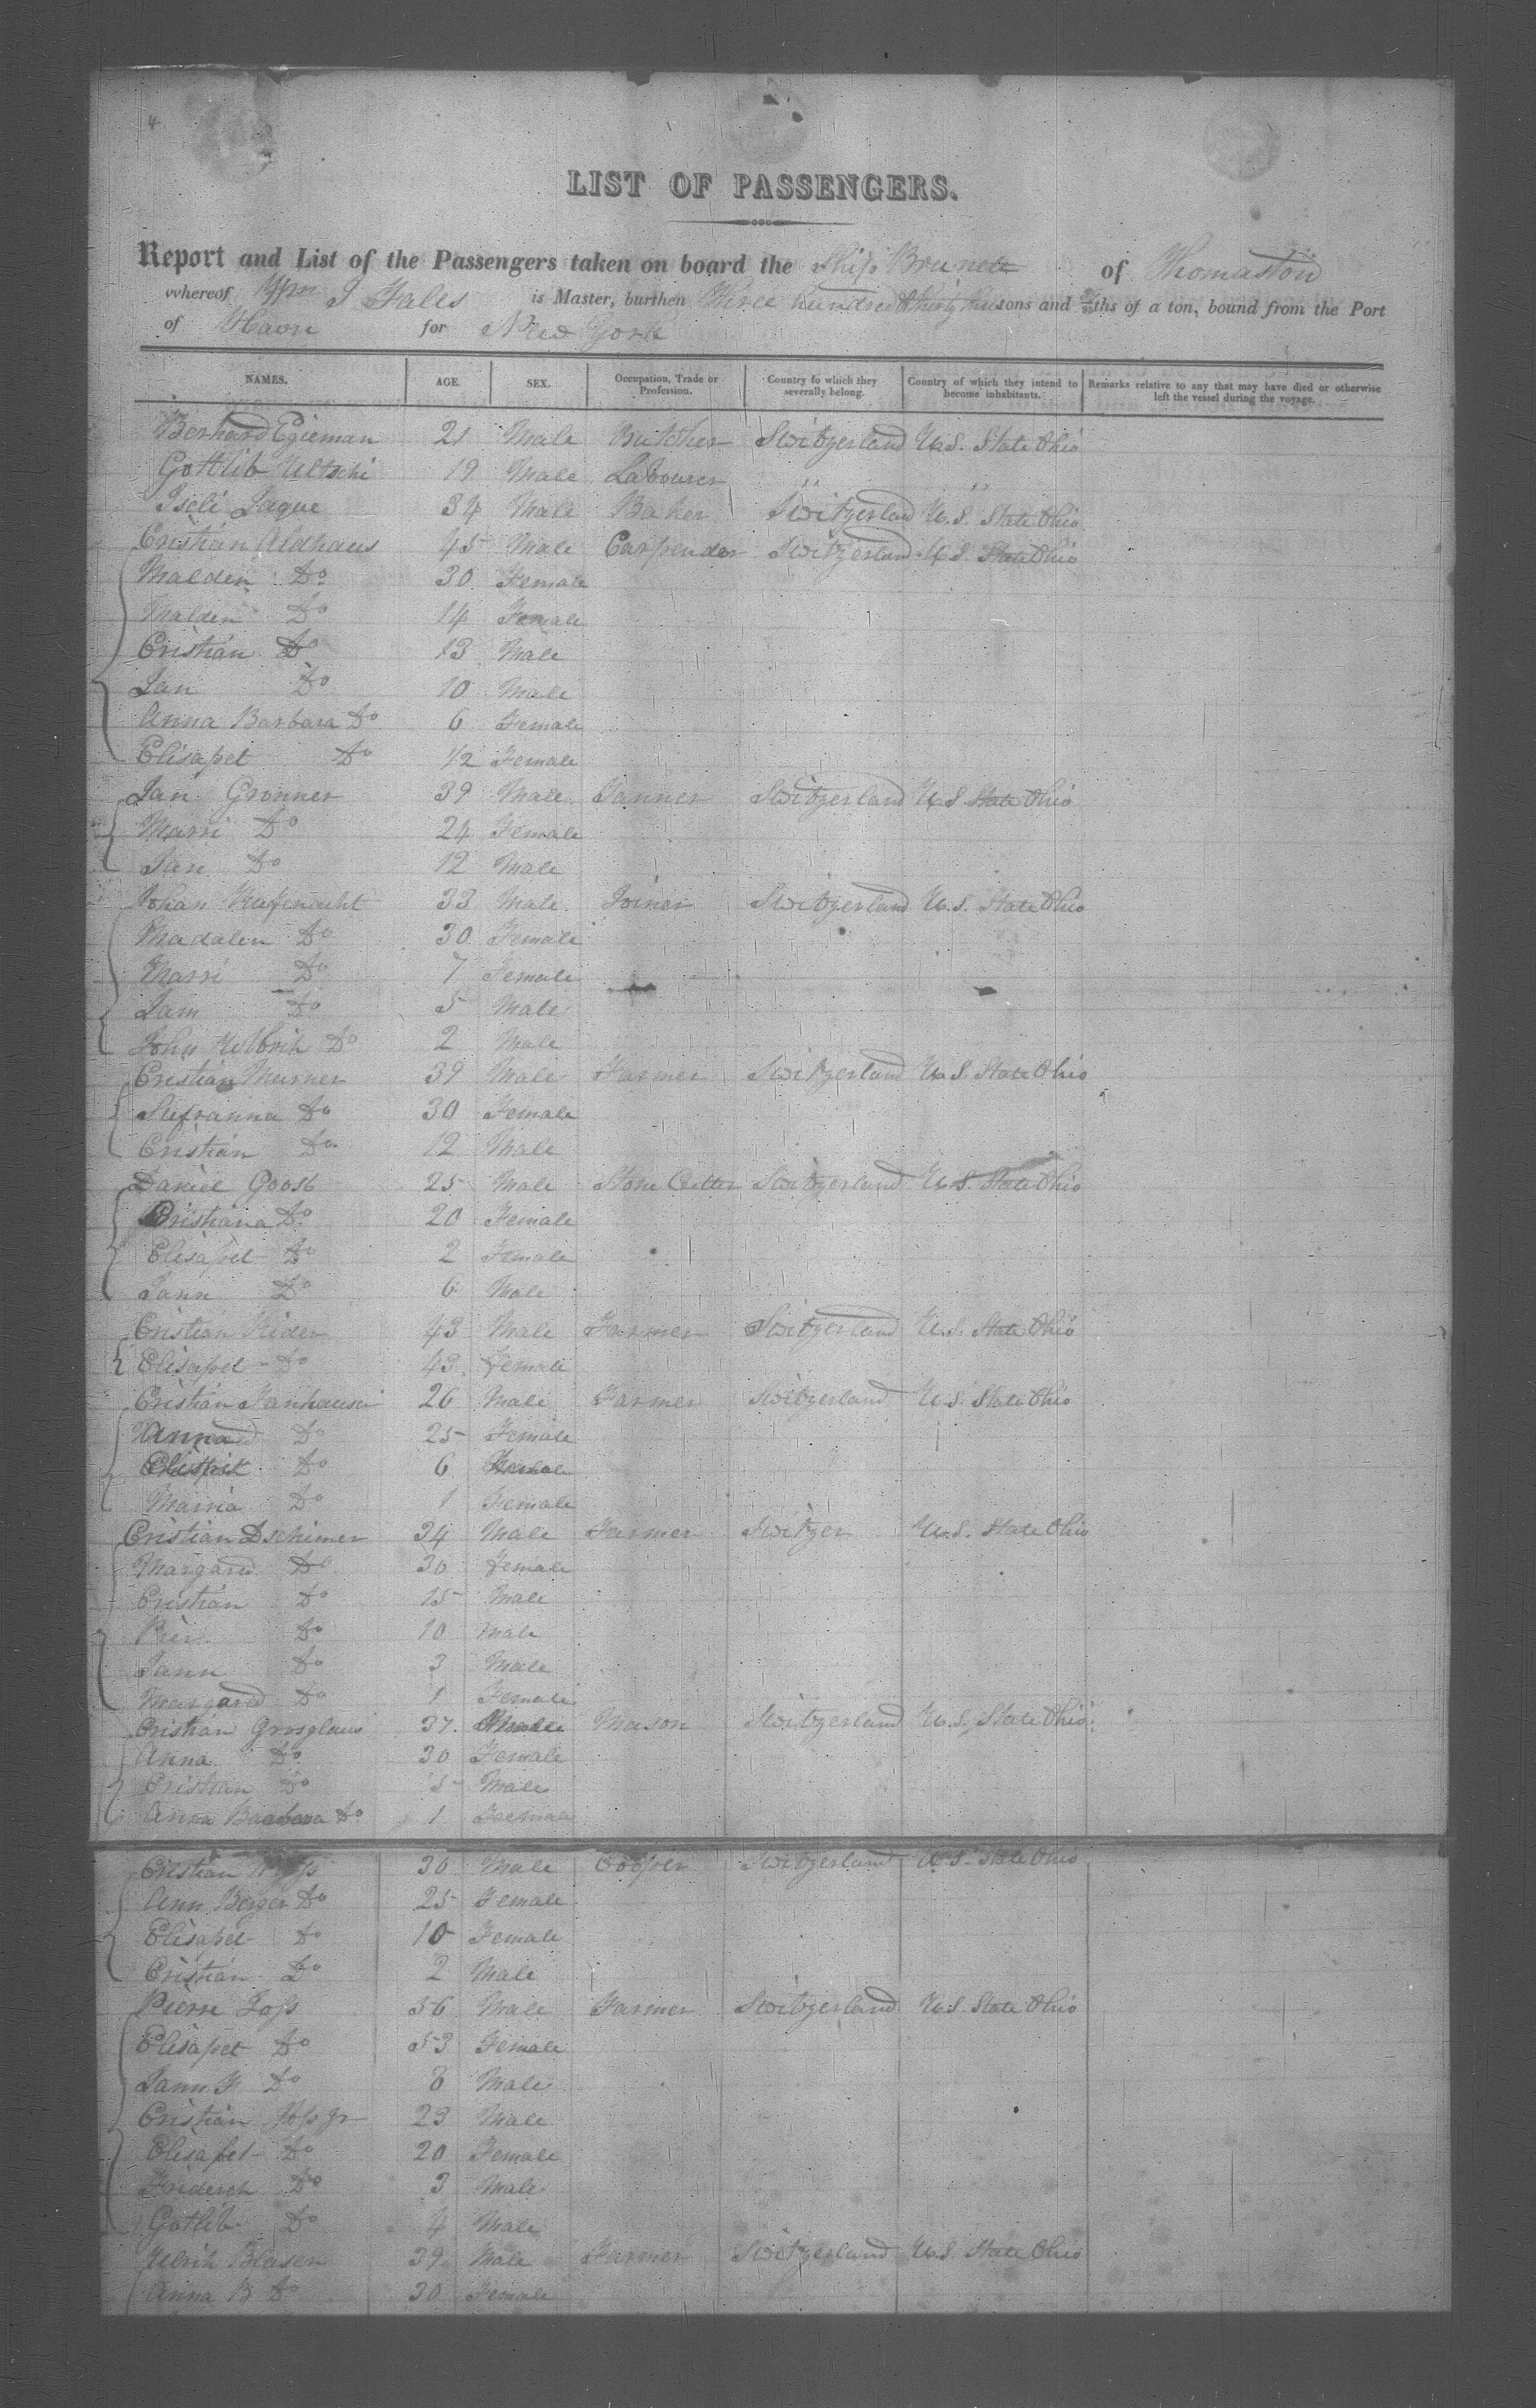 4
LIST OF PASSENGERS.
Report and List of the Passengers taken on board the Ship Brunete of Thomaston
whereof Wm J Fales is Master, burthen Three hundred & thirty tons and ths of a ton, bound from the Port
of Havre for New York
NAMES. AGE. SEX. Occupation, Trade or Profession. Country to which they severally belong. Country of which they intend to become inhabitants. Remarks relative to any that may have died or otherwise left the vessel during the voyage.
Berhard Egieman 21 Male Butcher Switzerland U.S. State Ohio
Gottlib 19 Male Labourer " "
Iseli Jaque 34 Male Baker Switzerland U.S. State Ohio
Cristian Aldhaus 45 Male Carpender Switzerland U.S. State Ohio
Malden Do 30 Female
Malden Do 14 Female
Cristian Do 13 Male
Jan Do 10 Male
Anna Barbara Do 6 Female
Elisapet Do 1/2 Female
Jan Gronner 39 Male Tanner Switzerland U.S. State Ohio
Marri Do 24 Female
Jan Do 12 Male
Johan 33 Male Joiner Switzerland U.S. State Ohio
Madalen Do 30 Female
Marri Do 7 Female
Jam Do 5 Male
John Do 2 Male
Cristian Murner 39 Male Farmer Switzerland U.S. State Ohio
Sufranna Do 30 Female
Cristian Do 12 Male
Daniel Goost 25 Male Stone Cutter Switzerland U.S. State Ohio
Cristiana Do 20 Female
Elisapet Do 2 Female
Jann Do 6 Male
Cristian Nider 43 Male Farmer Switzerland U.S. State Ohio
Elisapet Do 43 Female
Cristian Janhauser 26 Male Farmer Switzerland U.S. State Ohio
Anna Do 25 Female
Do 6
Marria Do 1 Female
Cristian Dschimer 34 Male Farmer Switzer U.S. State Ohio
Margared Do 30 Female
Cristian Do 15 Male
Pier Do 10 Male
Jann Do 3 Male
Margared Do 1 Female
Cristian Grosglaus 37 Male Mason Switzerland U.S. State Ohio
Anna Do 30 Female
Cristian Do 5 Male
Anna Barbara Do 1 Feemale
Cristian 30 Male Cooper Switzerland U.S. State Ohio
Ann Berger Do 25 Female
Elisapet Do 10 Female
Cristian Do 2 Male
Pierre Joss 56 Male Farmer Switzerland U.S. State Ohio
Elisapet Do 53 Female
Jann Do 8 Male
Cristian 23 Male
Elisapet Do 20 Female
Friderich Do 3 Male
Gotlib Do 4 Male
Ulrih Blaser 39 Male Farmer Switzerland U.S. State Ohio
Anna B Do 30 Female